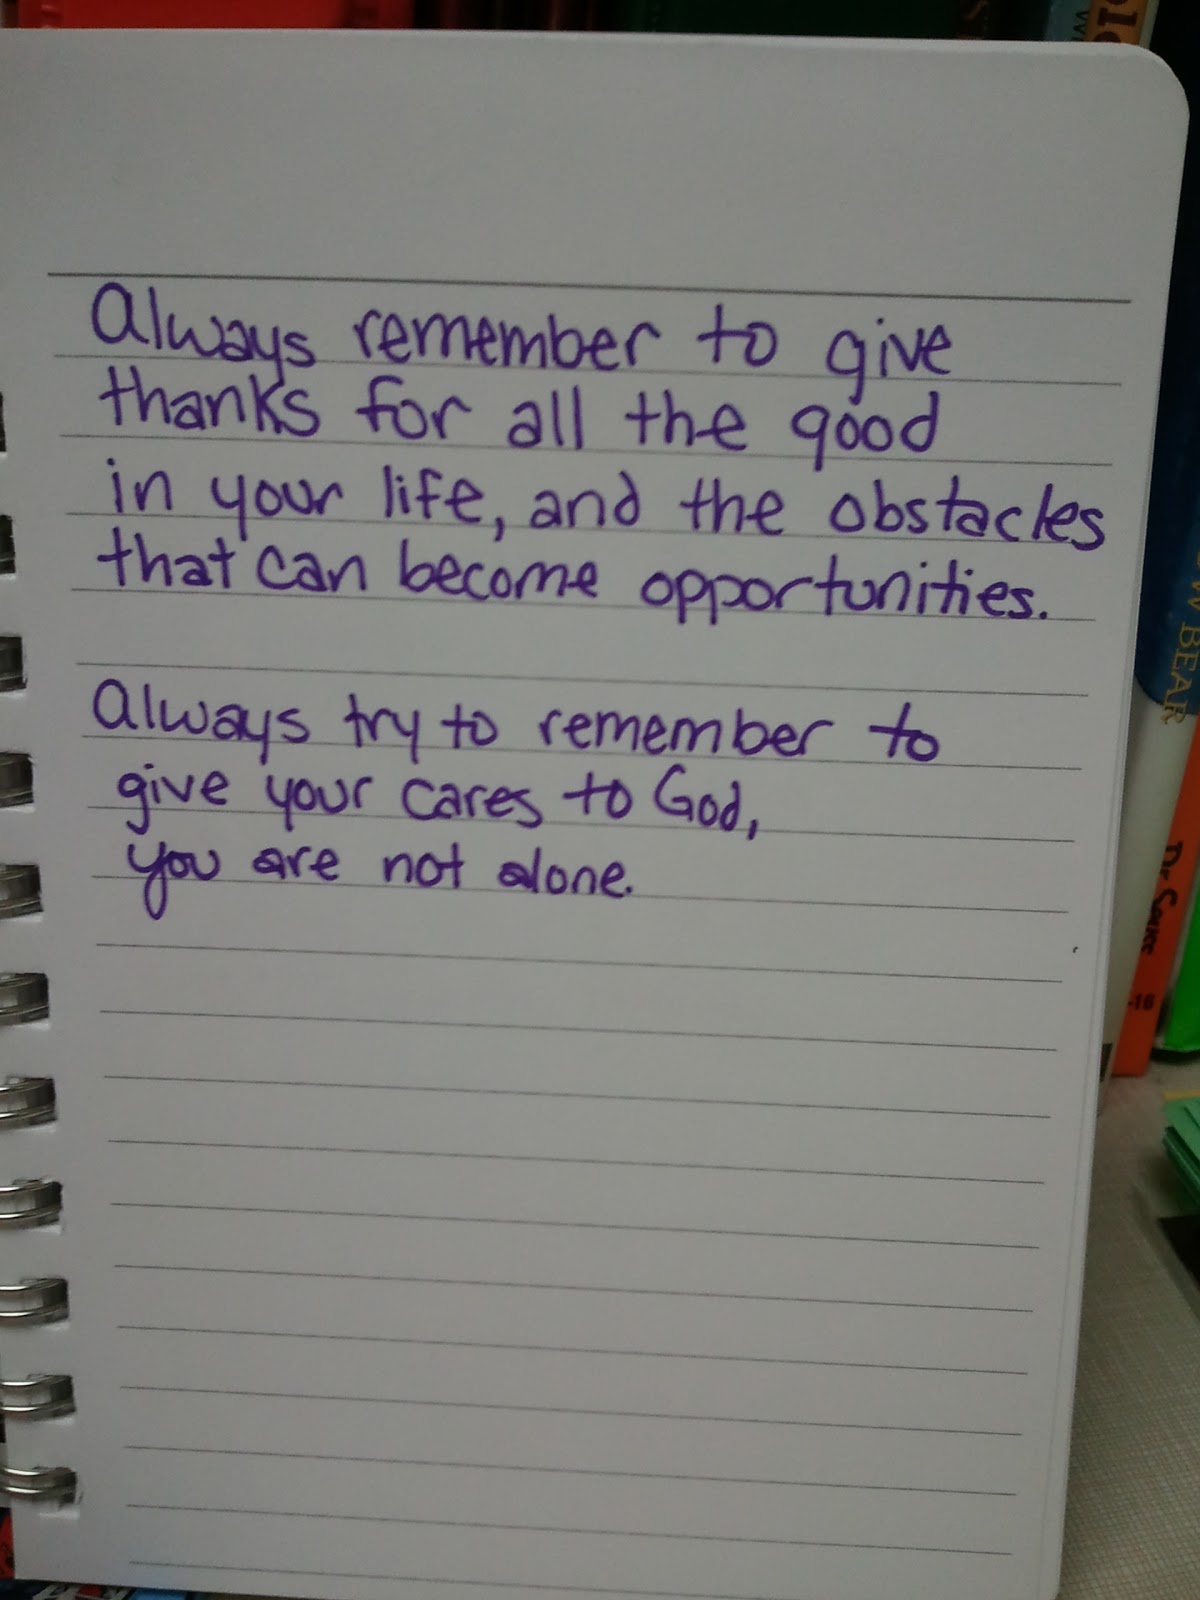 Always remember to give
thanks for all the good
in your life, and the obstacles
that can become opportunities.
Always try to remember to
give your cares to God,
you are not alone.
BEAR
Dr. Seuss
-16